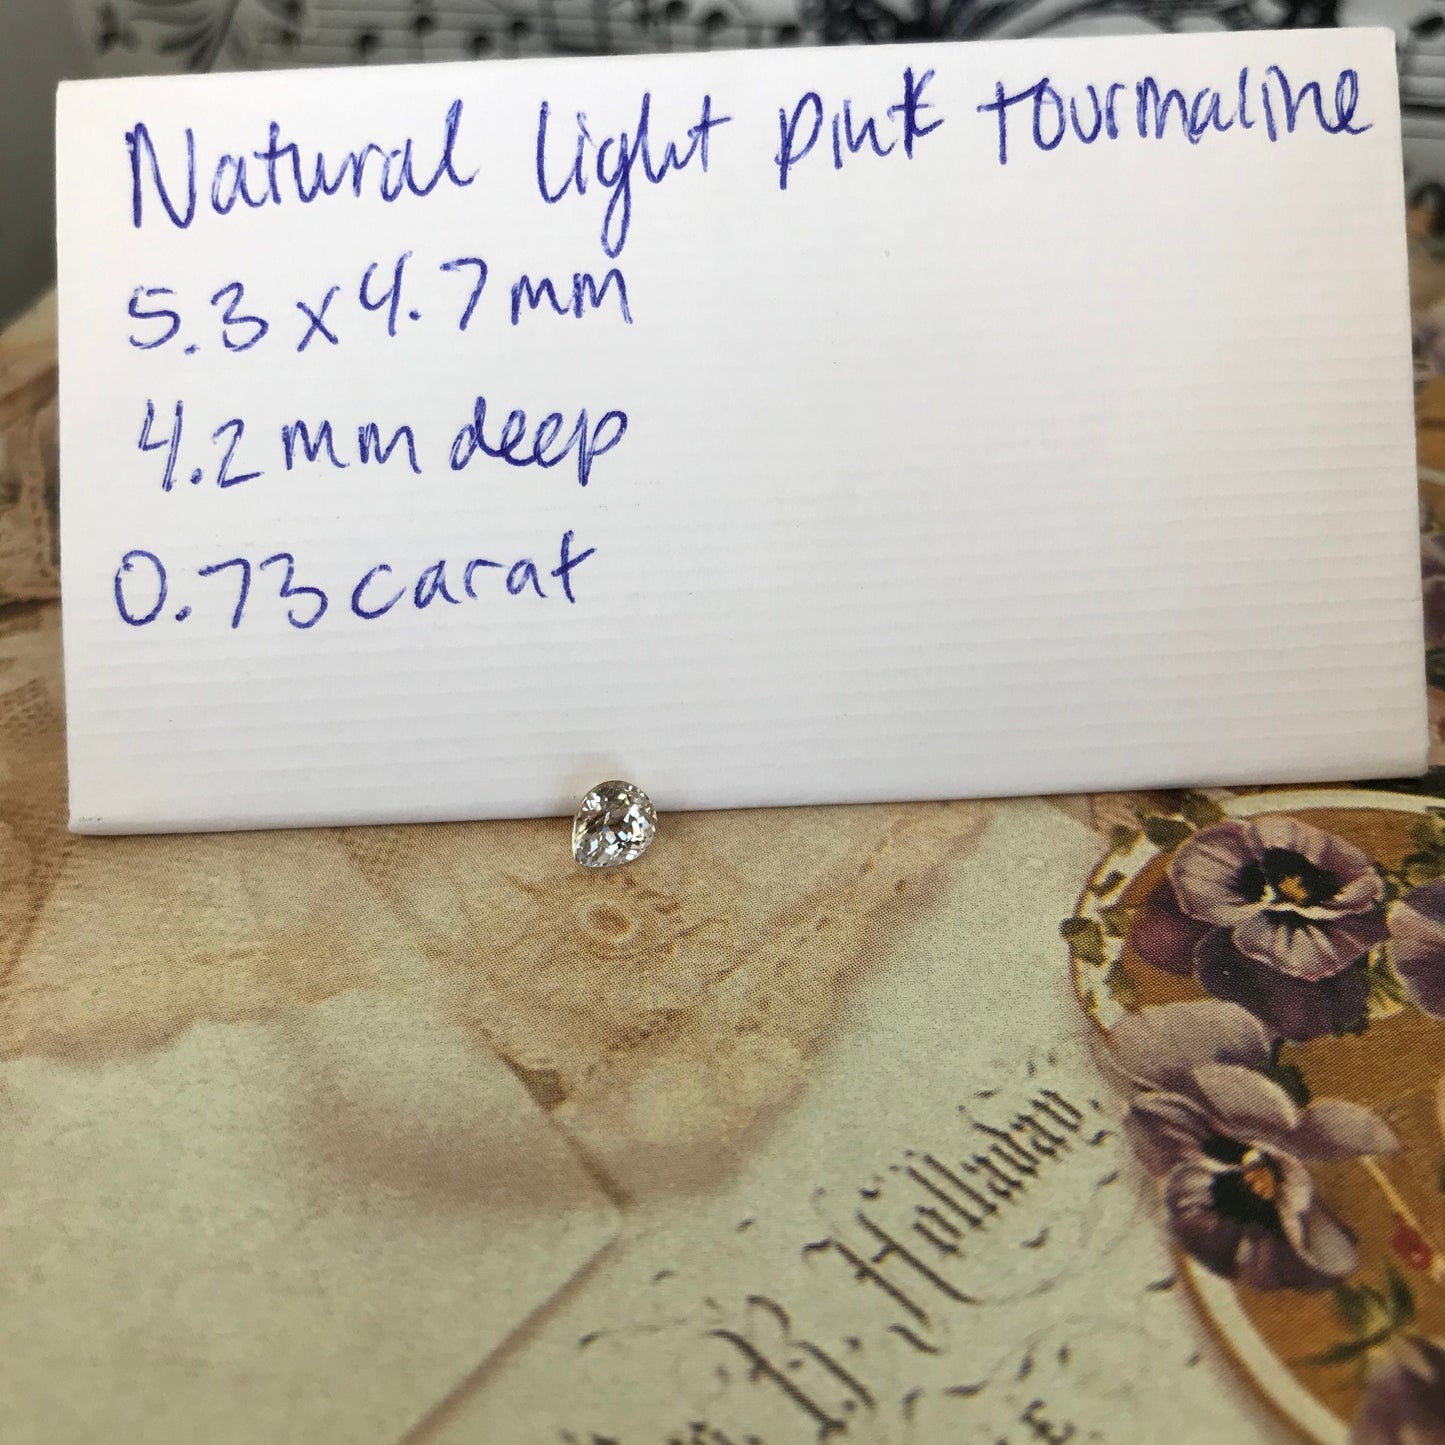 Natural light pink tourmaline
5.3 x 4.7 mm
4.2 mm deep
0.73 carat
B. Holladay,